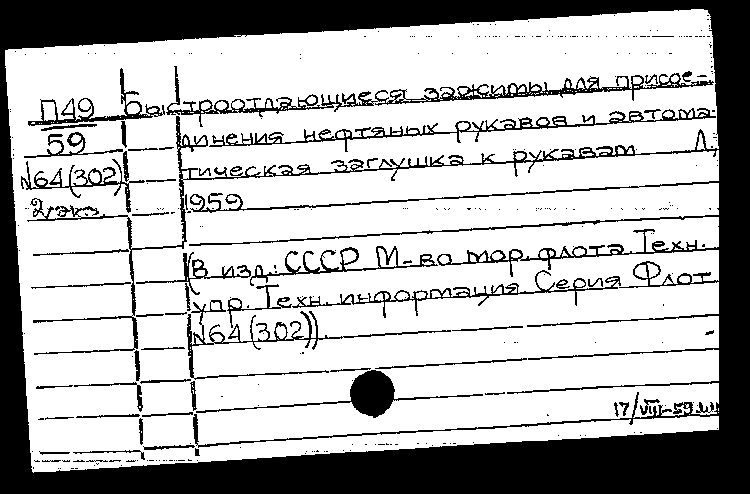 П49 Быстроотдающиеся зажимы для присое-
59 динения нефтяных рукавов и автома
N64(302) тическая заглушка к рукавам Л,
2 экз. 1959
(В изд.: СССР М-во мор. флота. Техн.
упр. Техн. информация. Серия Флот
N64(302)).
17/VIII-59